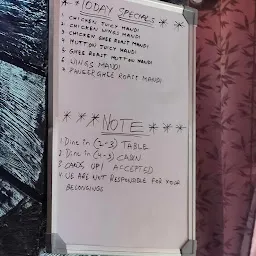 * * TODAY SPECIALS * *
1 CHICKEN JUICY MANDI
2 CHICKEN WINGS MANDI
3 CHICKEN GHEE ROAST MANDI
4 MUTTON JUICY MANDI
5 GHEE ROAST MUTTON MANDI
6 WINGS MANDI
7 GHEE ROAST MANDI
* * * NOTE * * *
1 Dine in (2-3) TABLE
2 Dine in (4-3) CABIN
3 CARDS, UPI ACCEPTED
4 WE ARE NOT RESPONSIBLE FOR YOUR
BELONGINGS